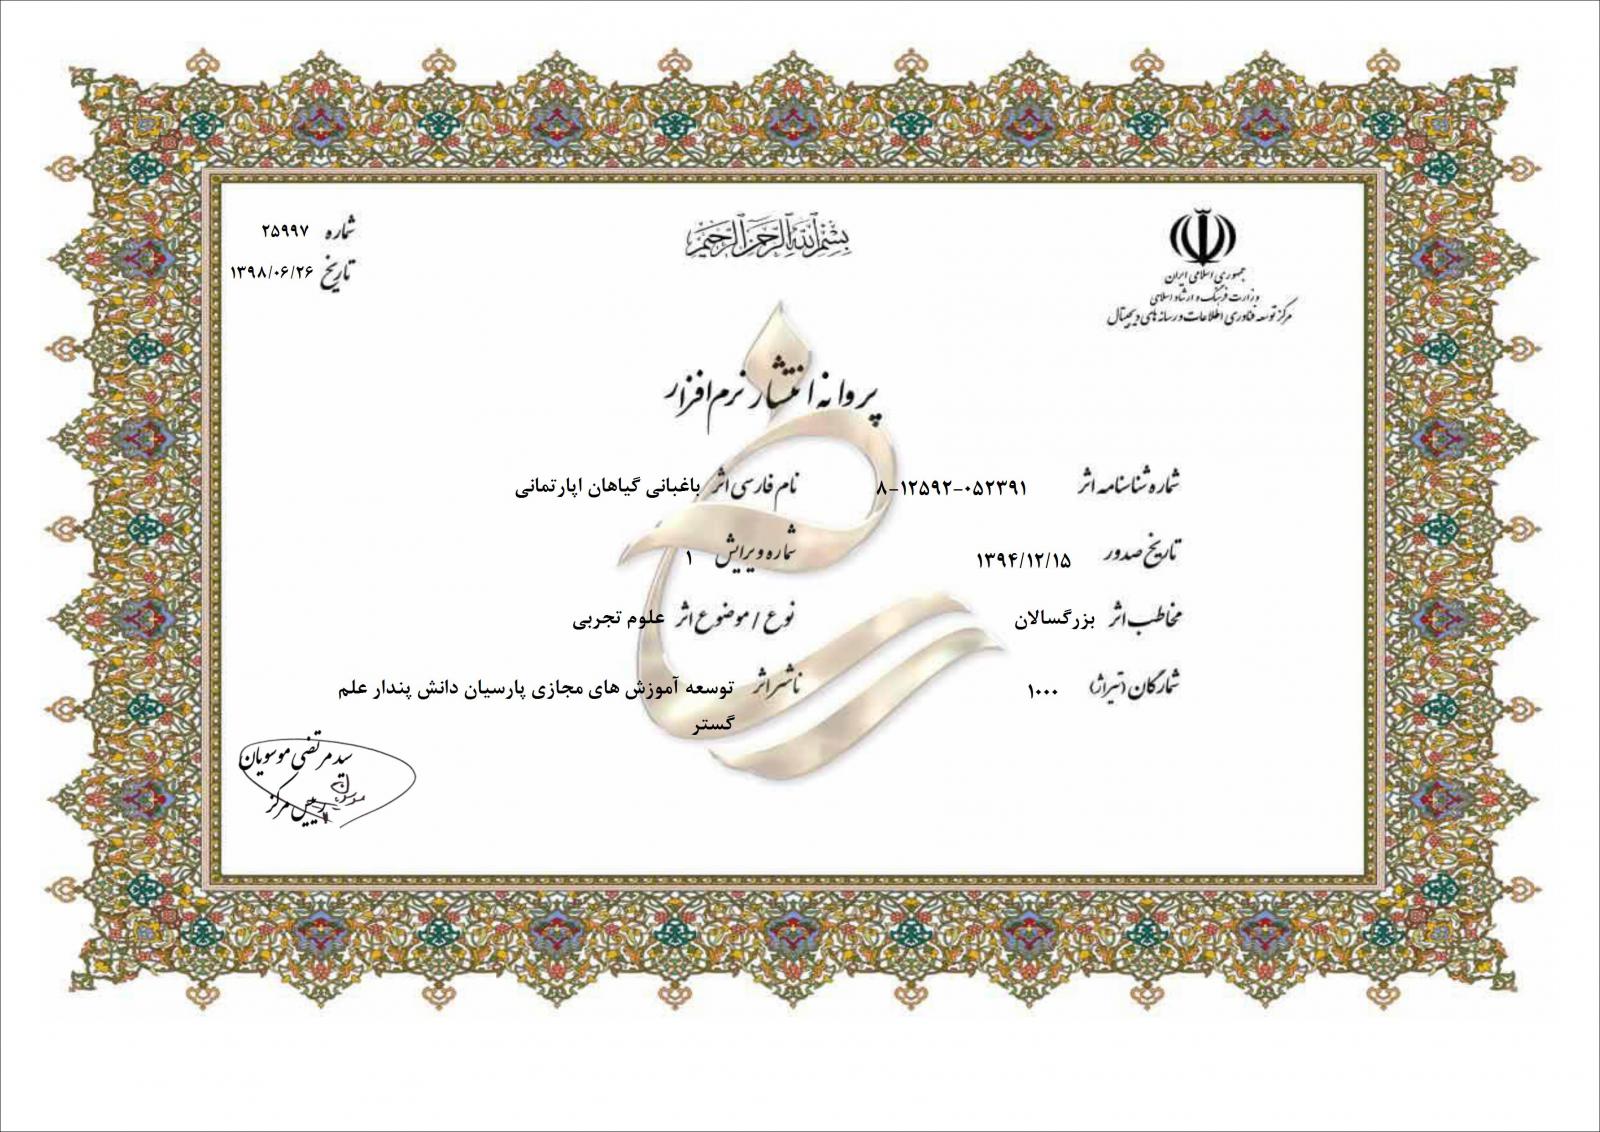 بسم الله الرحمن الرحیم
جمهوری اسلامی ایران
وزارت فرهنگ و ارشاد اسلامی
مرکز توسعه فناوری اطلاعات و رسانه های دیجیتال
شماره ۲۵۹۹۷
تاریخ ۱۳۹۸/۰۶/۲۶
پروانه انتشار نرم افزار
شماره شناسنامه اثر ۸-۱۲۵۹۲-۰۵۲۳۹۱
نام فارسی اثر باغبانی گیاهان اپارتمانی
تاریخ صدور ۱۳۹۴/۱۲/۱۵
شماره ویرایش ۱
مخاطب اثر بزرگسالان
نوع / موضوع اثر علوم تجربی
شمارگان (تیراژ) ۱۰۰۰
ناشر اثر توسعه آموزش های مجازی پارسیان دانش پندار علم
گستر
سید مرتضی موسویان
رییس مرکز